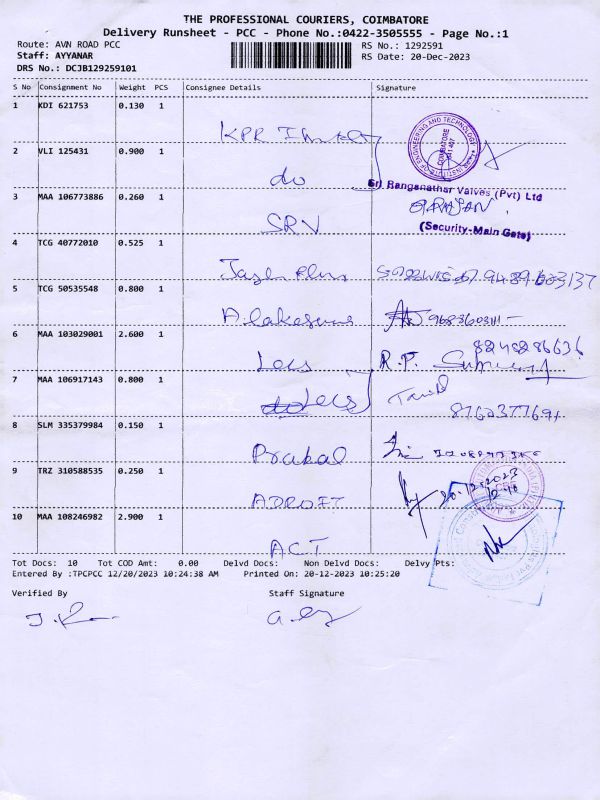 THE PROFESSIONAL COURIERS, COIMBATORE
Delivery Runsheet - PCC - Phone No.:0422-3505555 - Page No.:1
Route: AVN ROAD PCC RS No.: 1292591
Staff: AYYANAR RS Date: 20-Dec-2023
DRS No.: DCJB129259101
S No Consignment No Weight PCS Consignee Details Signature
1 KDI 621753 0.130 1
KPR
2 VLI 125431 0.900 1
do
Sri Ranganathar Valves (Pvt) Ltd
3 MAA 106773886 0.260 1
SRV
(Security-Main Gate)
4 TCG 40772010 0.525 1
5 TCG 50535548 0.800 1
6 MAA 103029001 2.600 1
Lecs R.P. 8248286636
7 MAA 106917143 0.800 1
Lecs 8760377691
8 SLM 335379984 0.150 1
Prabal
9 TRZ 310588535 0.250 1
ADROIT 20.12.2023
10 MAA 108246982 2.900 1
ACT
Tot Docs: 10 Tot COD Amt: 0.00 Delvd Docs: Non Delvd Docs: Delvy Pts:
Entered By :TPCPCC 12/20/2023 10:24:38 AM Printed On: 20-12-2023 10:25:20
Verified By Staff Signature